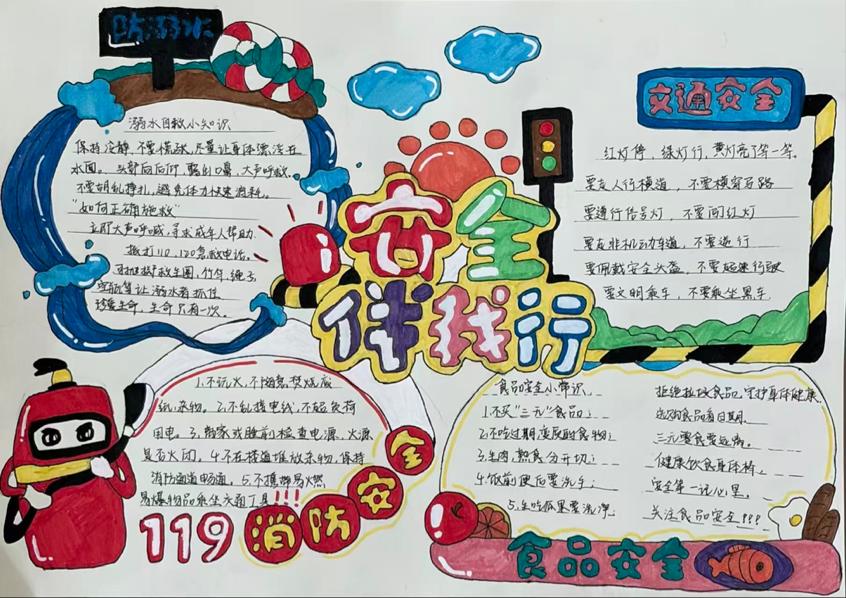 防溺水
溺水自救小知识
保持冷静,不要慌张,尽量让身体漂浮在
水面。头部向后仰,露出口鼻,大声呼救。
不要胡乱挣扎,避免体力快速消耗。
"如何正确施救"
立即大声呼喊,寻求成年人帮助.
拨打110、120急救电话。
可抛掷救生圈、竹竿、绳子
让溺水者抓住
珍爱生命,生命只有一次。
安全
伴我行
交通安全
红灯停,绿灯行,黄灯亮了等一等.
要走人行横道,不要横穿马路
要遵行信号灯,不要闯红灯
要走非机动车道,不要逆行
要佩戴安全头盔,不要超速行驶
要文明乘车,不要乘坐黑车.
1.不玩火,不随意焚烧废
纸、杂物。2.不乱接电线,不超负荷
用电。3.离家或睡前检查电源、火源
是否关闭。4.不在楼道堆放杂物,保持
消防通道畅通。5.不携带易燃
易爆物品乘坐交通工具
119消防安全
!!!
食品安全小常识
1.不买"三无"食品;
2.不吃过期、变质的食物;
3.生肉、熟食分开切;
4.饭前便后要洗手;
5.生吃瓜果要洗净;
拒绝垃圾食品,守护身体健康.
选购食品看日期.
三无零食要远离。
健康饮食身体棒.
安全第一记心里。
关注食品安全!!!
食品安全